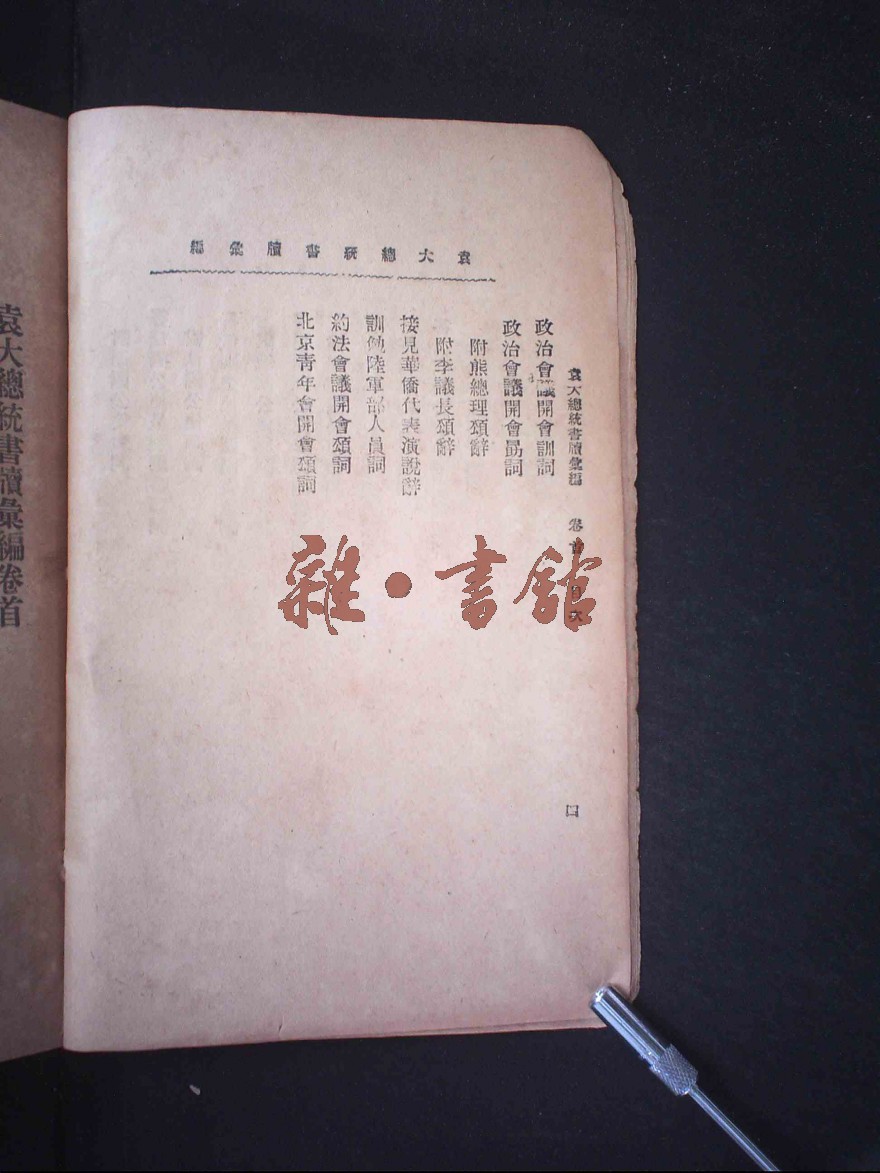 袁大總統書牘彙編
袁大總統書牘彙編 卷首 目次 四
政治會議開會訓詞
政治會議開會勗詞
附熊總理頌辭
附李議長頌辭
接見華僑代表演說辭
訓勉陸軍部人員詞
約法會議開會頌詞
北京青年會開會頌詞
雜·書館
袁大總統書牘彙編卷首